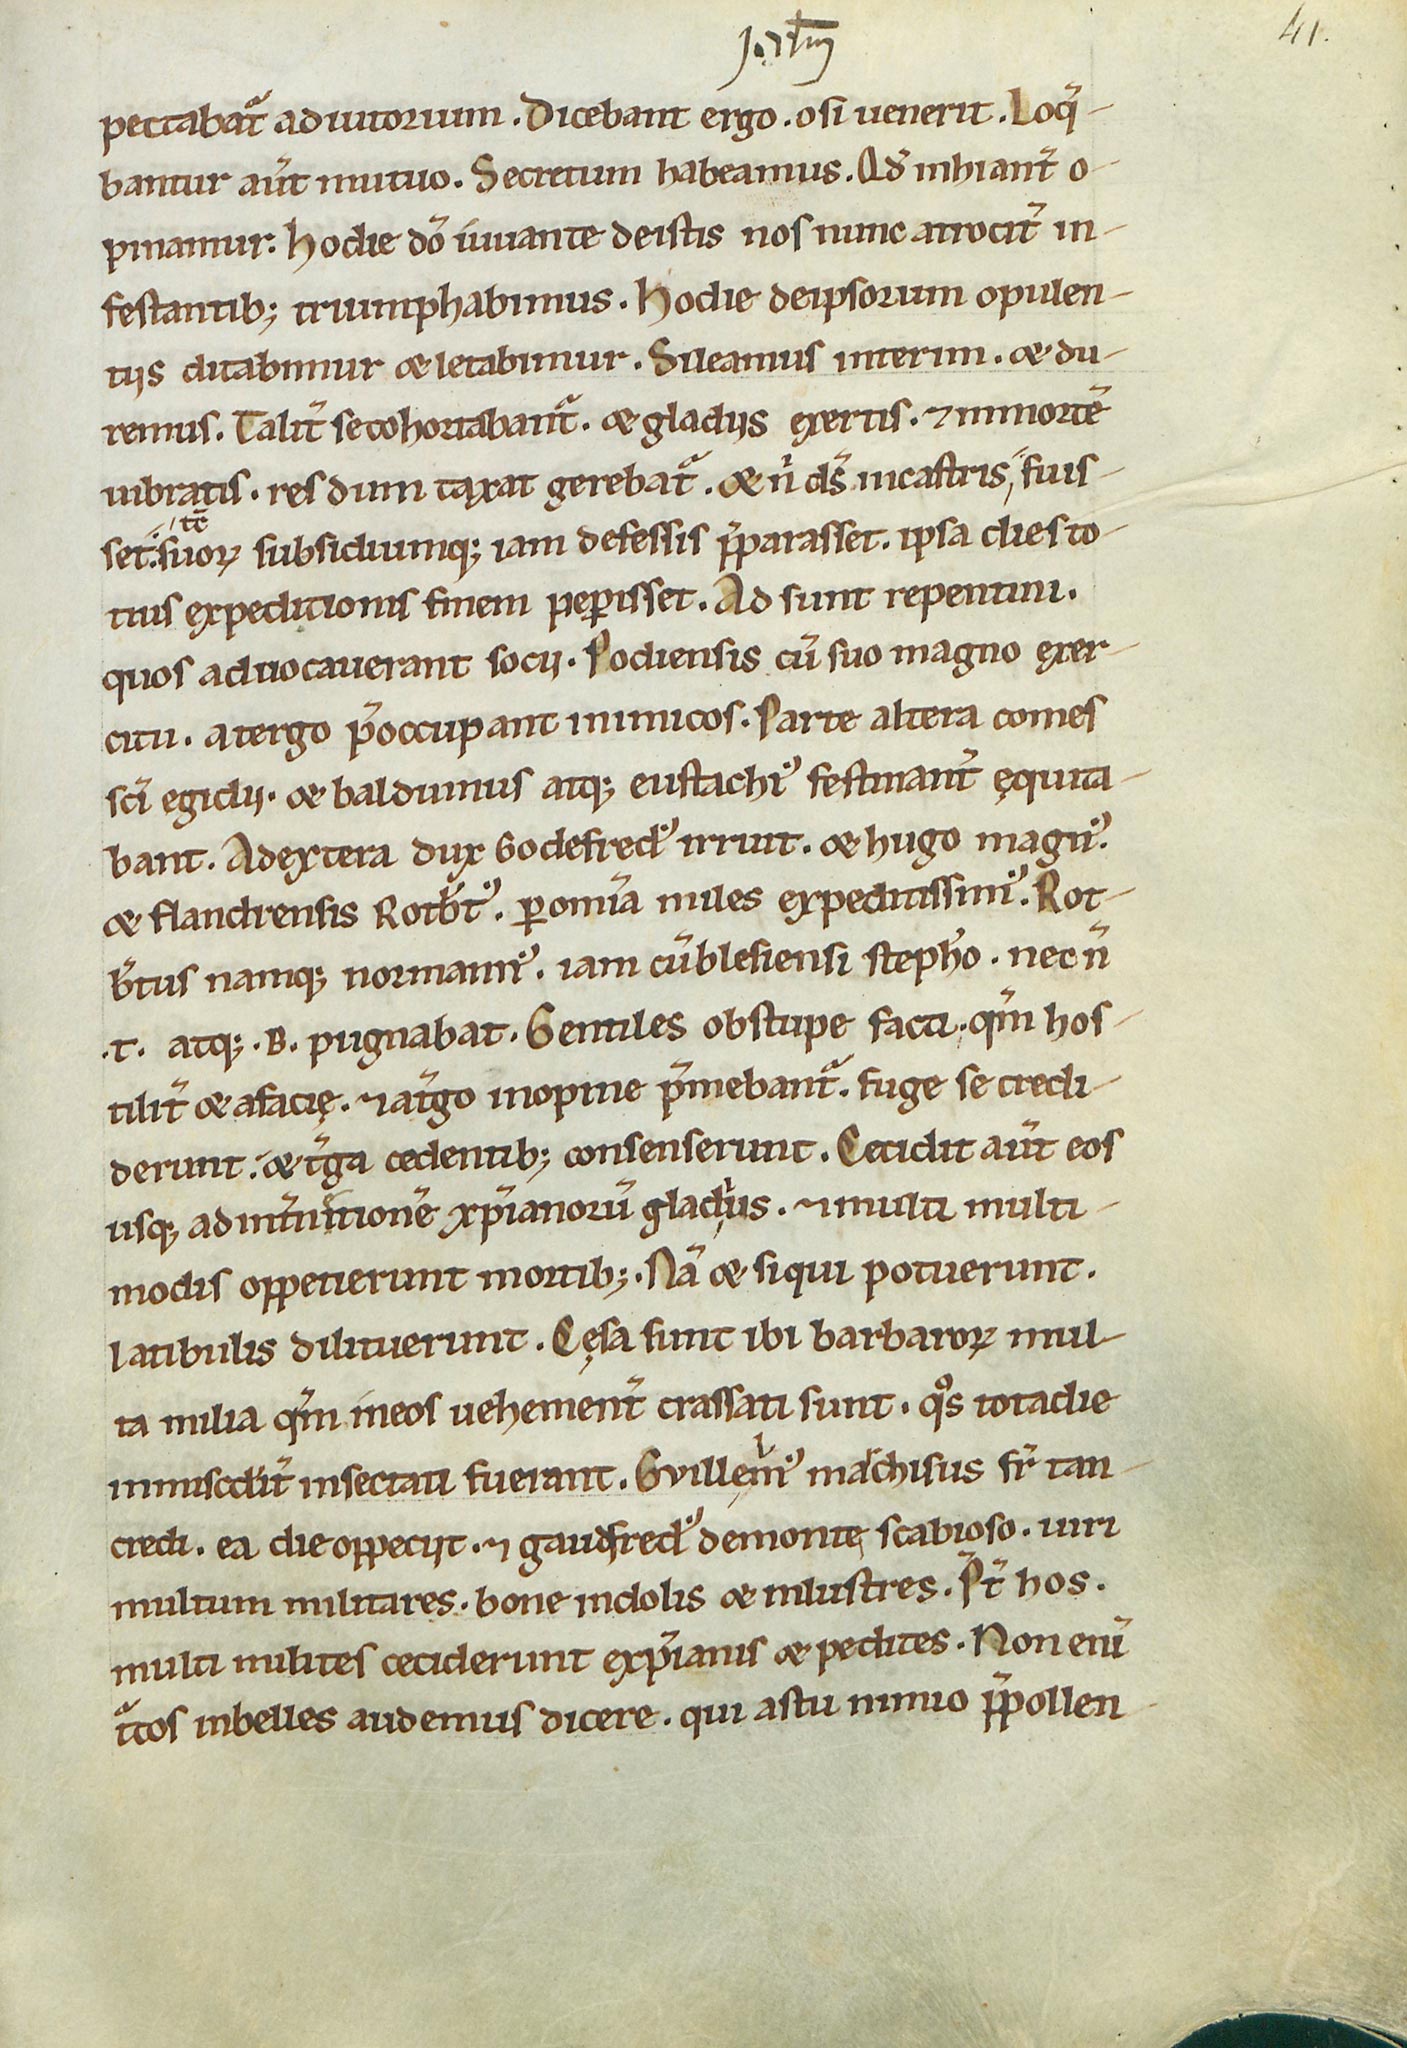 41.
pectabat᷑ adiutorium. Dicebant ergo. o si uenerit. Loq̄-
bantur aūt mutuo. Secretum habeamus. Ad inhiant᷑ o-
pinamur. Hodie dō iuuante deistis nos nunc atrocit᷑ in-
festantib; triumphabimus. Hodie deipsorum opulen-
tiis ditabimur & letabimur. Sileamus interim. & du-
remus. Talit᷑ se cohortabant᷑. & gladiis exertis. ⁊ inmortē
uibratis. res dum taxat gerebat᷑. & n̄ ds̄ incastris, fuis-
set. suoꝝ subsidiumq; iam defessis p̄parasset. ipsa dies to-
tius expeditionis finem peꝑisset. Ad sunt repentini.
quos aduocauerant socii. Podiensis cū suo magno exer-
citu. atergo p̄occupant inimicos. Parte altera comes
sc̄i egidii. & balduinus atq; eustachi᷒ festinant᷑ ęquita-
bant. Adextera dux Godefred᷒ irruit. & hugo magn᷒.
& flandrensis Rotb̄t᷒. ꝑ om̄ia miles expeditissim᷒. Rot-
b̄tus namq; normann᷒. iam cū blesiensi steph̄o. nec n̄
.t. atq; .B. pugnabat. Gentiles obstupe facti. qm̄ hos-
tilit᷑ & afacię. ⁊ at᷑go inopine p̄mebant᷑. fuge se credi-
derunt. & t᷑ga cedentib; consenserunt. Cecidit aūt eos
usq; ad int᷑nitionē xp̄ianorū gladius. ⁊ multi multi-
modis oppetierunt mortib;. Nā & siqui potuerunt.
latibulis dilituerunt. Cęsa sunt ibi barbaroꝝ mul-
ta milia qm̄ ineos uehement᷑ crassati sunt. qͦs totadie
inmiscdit᷑ insectati fuerant. Gvillęm᷒ marchisus fr̄ tan-
credi. ea die oppeciit. ⁊ gaudfred᷒ demonte scabioso. uiri
multum militares. bone indolis & inlustres. P̄t᷑ hos.
multi milites ceciderunt exp̄ianis & pedites. Non enī
t᷑cos inbelles audemus dicere. qui astu nimio p̄pollen-